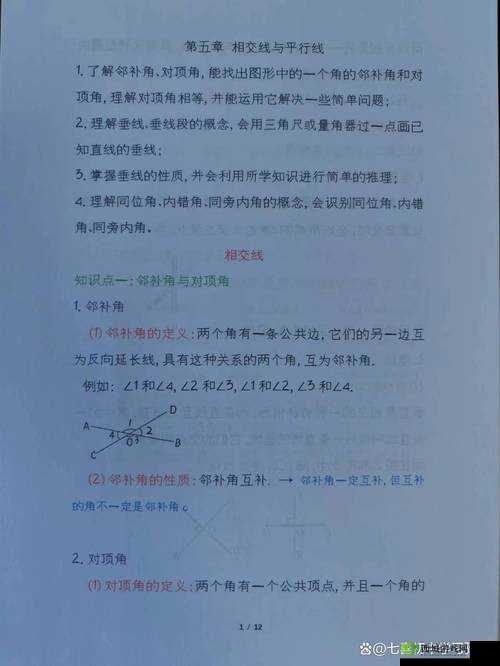 第五章 相交线与平行线
1. 了解邻补角、对顶角, 能找出图形中的一个角的邻补角和对
顶角, 理解对顶角相等, 并能运用它解决一些简单问题;
2. 理解垂线、垂线段的概念, 会用三角尺或量角器过一点画已
知直线的垂线;
3. 掌握垂线的性质, 并会利用所学知识进行简单的推理;
4. 理解同位角、内错角、同旁内角的概念, 会识别同位角、内错
角、同旁内角。
相交线
知识点一: 邻补角与对顶角
1. 邻补角
(1) 邻补角的定义: 两个角有一条公共边, 它们的另一边互
为反向延长线, 具有这种关系的两个角, 互为邻补角.
例如: ∠1和∠4, ∠2和∠3, ∠1和∠2, ∠3和∠4.
D
A 1
4 2
O 3 B
C
(2) 邻补角的性质: 邻补角互补. → 邻补角一定互补, 但互补
的角不一定是邻补角。
2. 对顶角
(1) 对顶角的定义: 两个角有一个公共顶点, 并且一个角的
1 / 12